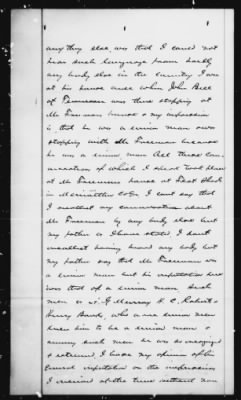 any thing else, was that I could not
hear such language from hardly
any body else in the County I was
at his house once when John Bell
of Tennessee was there stopping at
Mr Freeman house & my impression
is that he was a union man was
stopping with Mr Freeman because
he was a union man All these con-
versations of which I speak took place
at Mr Freemans house at
in Meriwether Co Ga I cant say that
I recollect any conversation about
Mr Freeman by any body else but
my father as I have stated, I dont
recollect having heard any body but
my father say that Mr Freeman was
a union man but his reputation here
was that of a union man Such
men as W. G Murray H. C. Roberts &
Henry Banks, who are union men
knew him to be a union man &
among such men he was so recognized
& esteemed, I base my opinion of his
general reputation on the impression
I received at the time without now